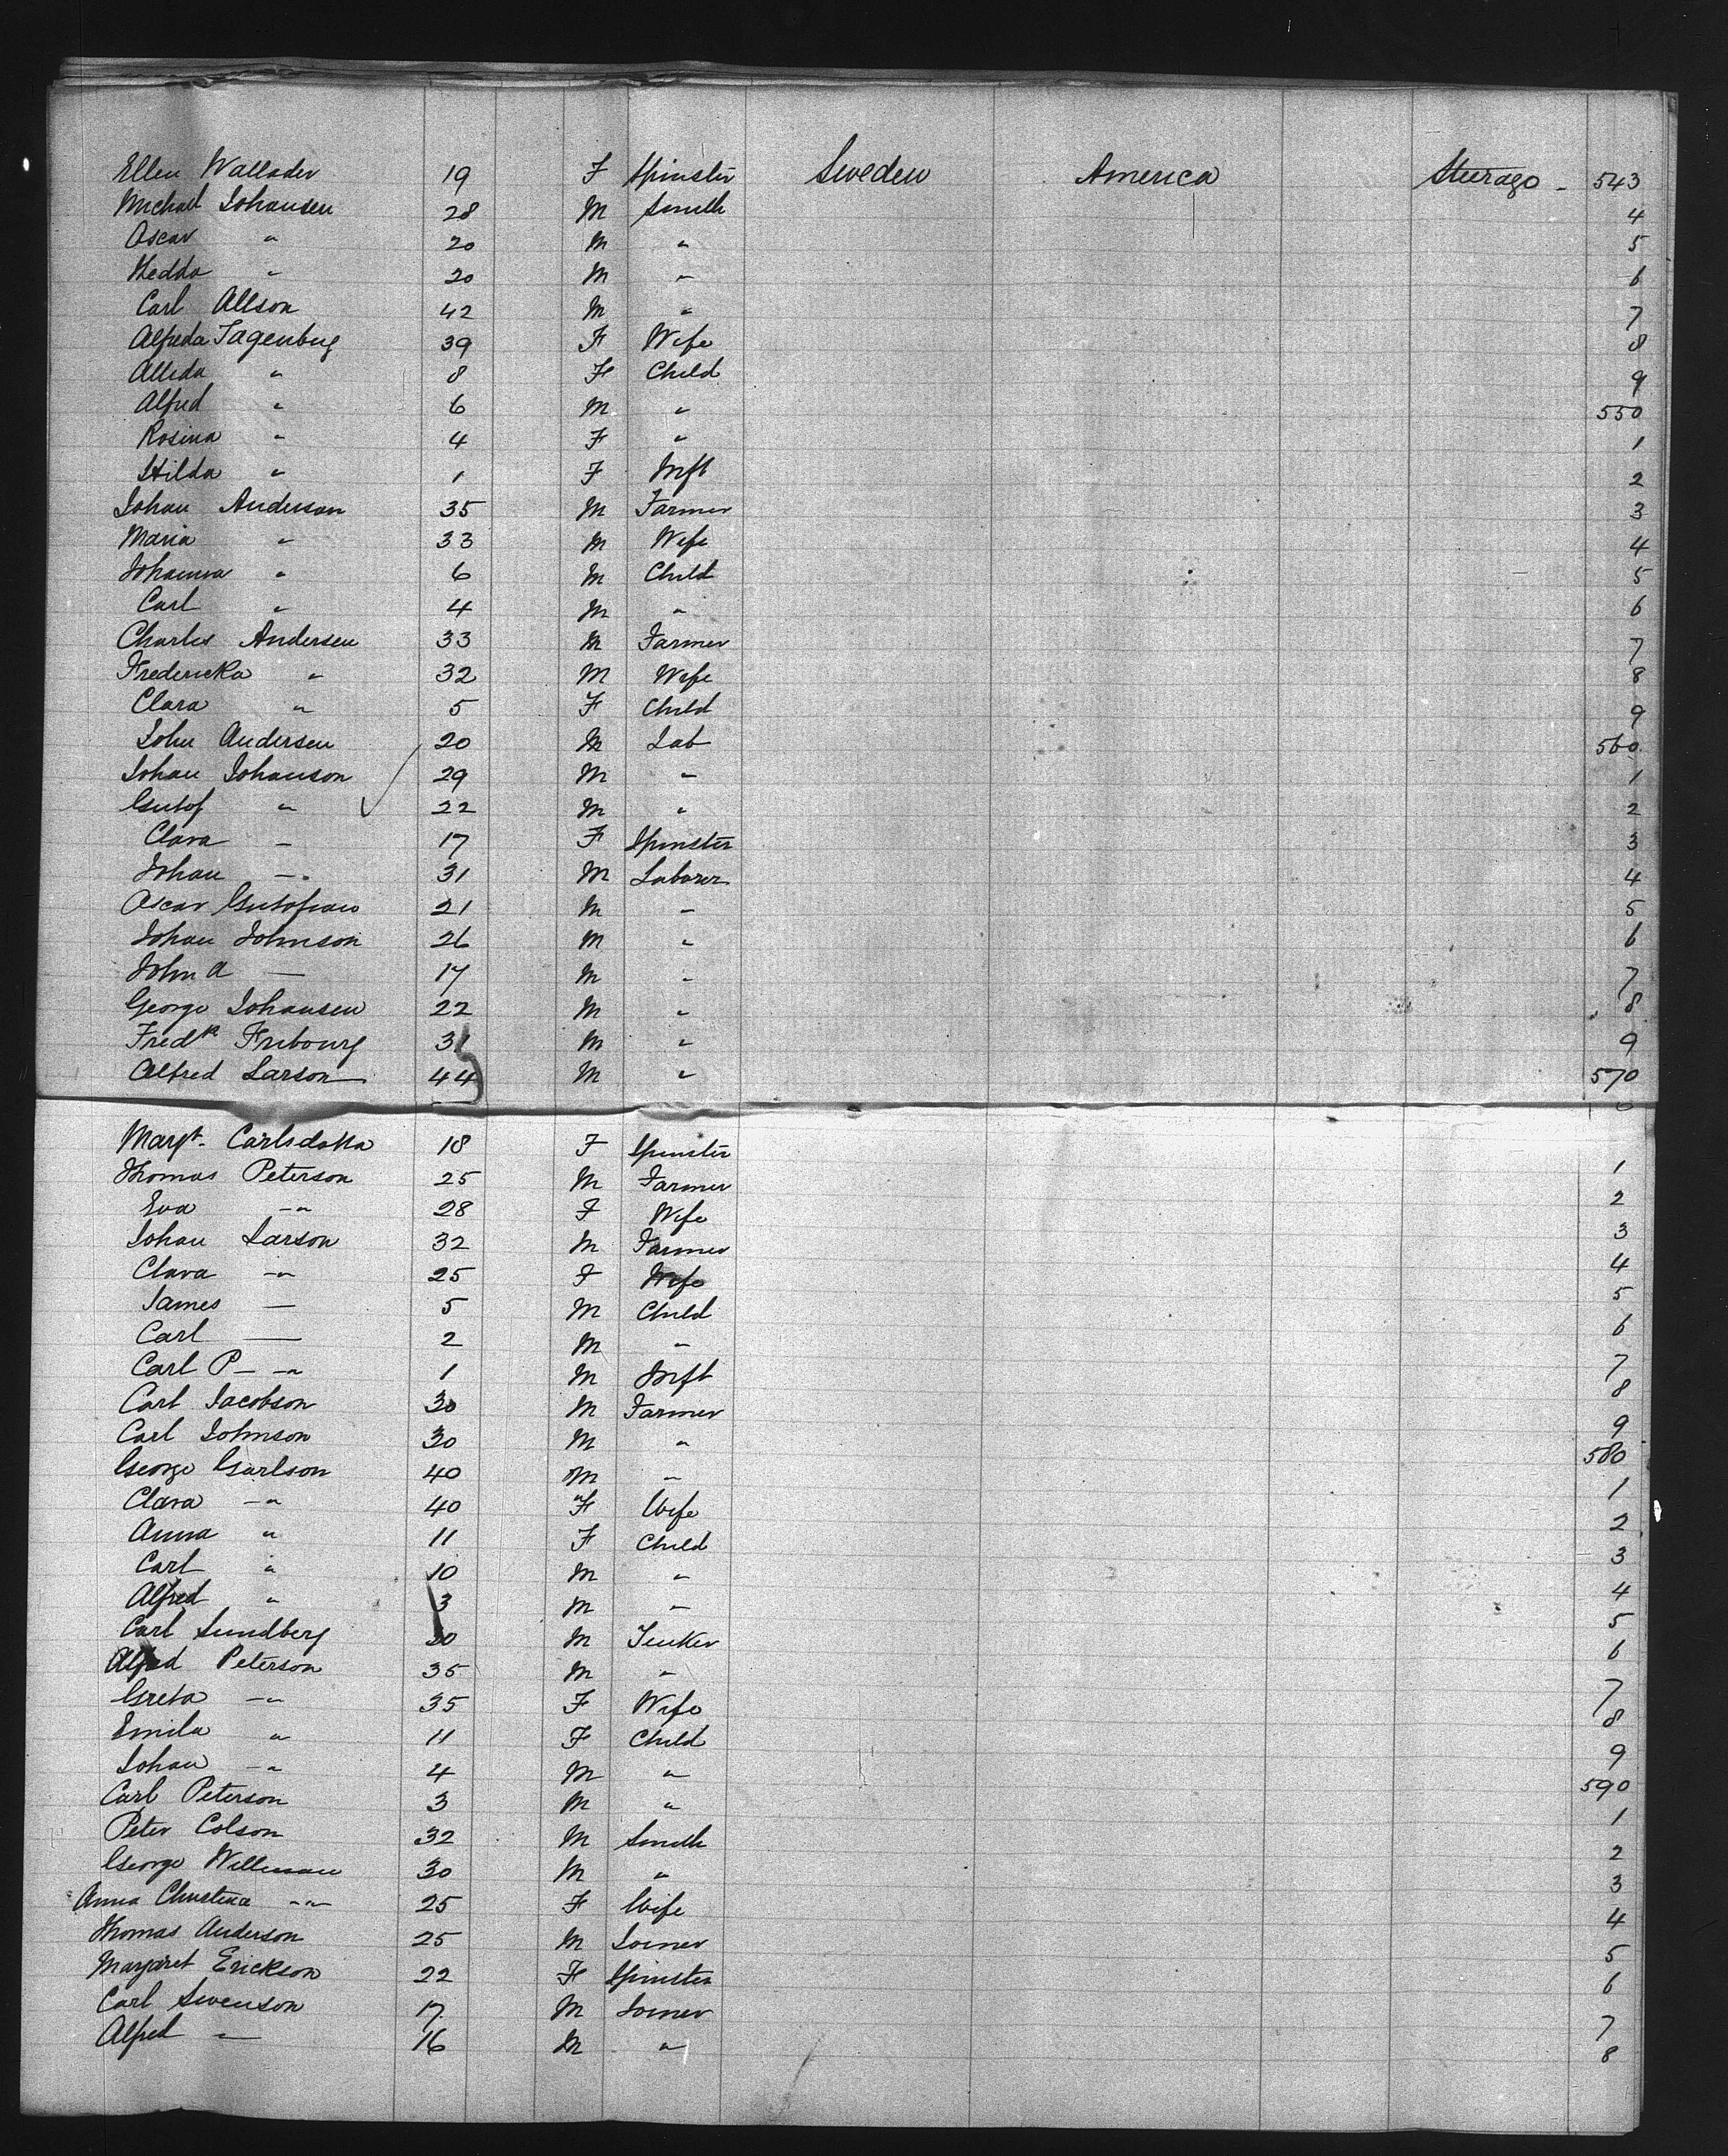 Ellen Wallader 19 F Spinster Sweden America Steerage - 543
Michael Johansen 28 M Smith 4
Oscar " 20 M " 5
Hedda " 20 M " 6
Carl Allson 42 M " 7
Alfreda Fagenburg 39 F Wife 8
Alleda " 8 F Child 9
Alfred " 6 M " 550
Rosina " 4 F " 1
Hilda " 1 F Inft 2
Johan Anderson 35 M Farmer 3
Maria " 33 M Wife 4
Johanna " 6 M Child 5
Carl " 4 M " 6
Charles Andersen 33 M Farmer 7
Fredericka " 32 M Wife 8
Clara " 5 F Child 9
John Andersen 20 M Lab 560
Johan Johanson 29 M " 1
Gustof " 22 M " 2
Clara - 17 F Spinster 3
Johan - 31 M Laborer 4
Oscar Gustofson 21 M " 5
Johan Johnson 26 M " 6
John A — 17 M " 7
George Johansen 22 M " 8
Fredk Fribourg 31 M " 9
Alfred Larson 44 M " 570
Margt. Carlsdotta 18 F Spinster 1
Thomas Peterson 25 M Farmer 2
Eva -" 28 F Wife 3
Johan Larson 32 M Farmer 4
Clara -" 25 F Wife 5
James — 5 M Child 6
Carl — 2 M " 7
Carl P- -" 1 M Inft 8
Carl Jacobson 30 M Farmer 9
Carl Johnson 30 M " 580
George Garlson 40 M " 1
Clara -" 40 F Wife 2
Anna " 11 F Child 3
Carl " 10 M " 4
Alfred " 3 M " 5
Carl Sundberg 30 M Tinker 6
Alfred Peterson 35 M " 7
Greta -" 35 F Wife 8
Emila " 11 F Child 9
Johan -" 4 M " 590
Carl Peterson 3 M " 1
Peter Colson 32 M Smith 2
George Willman 30 M " 3
Anna Christina -" 25 F Wife 4
Thomas Anderson 25 M Joiner 5
Margaret Erickson 22 F Spinster 6
Carl Swenson 17 M Joiner 7
Alfred — 16 M " 8